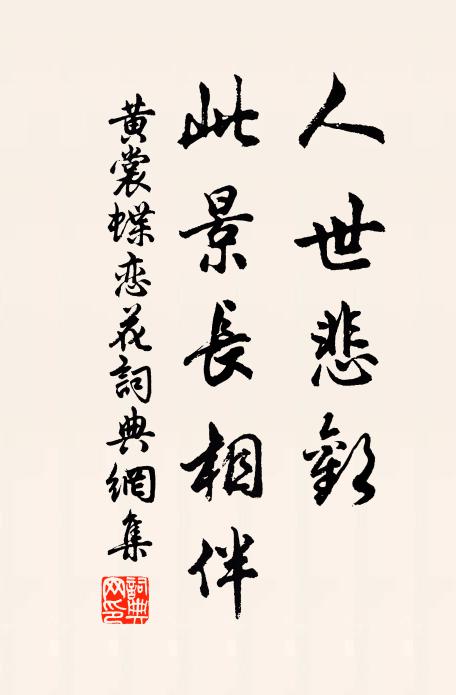 人世悲歡
此景長相伴
黄裳蝶恋花詞典網集
詞典网印